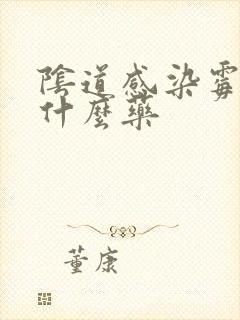 陰道感染霉
什麼藥
董康